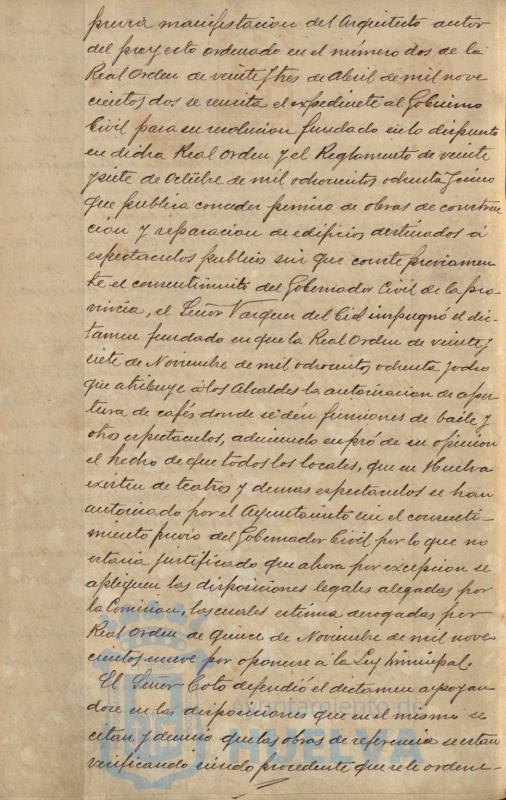 previa manifestacion del Arquitecto autor
del proyecto ordenado en el número dos de la
Real Orden de veinte y tres de Abril de mil nove
cientos dos se remita el expediente al Gobierno
Civil para su resolucion fundado en lo dispuesto
en dicha Real Orden y el Reglamento de veinte
y siete de Octubre de mil ochocientos ochenta y cinco
que publica conceder permiso de obras de construc
cion y reparacion de edificios destinados á
espectaculos publicos sin que conste previamen-
te el consentimiento del Gobernador Civil de la pro
vincia, el Señor Vazquez del Cid impugnó el dic-
tamen fundado en que la Real Orden de veinte y
siete de Noviembre de mil ochocientos ochenta y ocho
que atribuye á los Alcaldes la autorizacion de aper
tura de cafés donde se dén funciones de baile y
otros espectaculos, aduciendo en pró de su opinion
el hecho de que todos los locales, que en Huelva
existen de teatros y demas espectaculos se han
autorizado por el Ayuntamiento sin el consenti-
miento previo del Gobernador Civil por lo que no
estaria justificado que ahora por excepcion se
apliquen las disposiciones legales alegadas por
la Comision, las cuales estima derogadas por
Real Orden de quince de Noviembre de mil nove
cientos nueve por oponerse á la Ley Municipal.
El Señor Coto defendió el dictamen apoyan
dose en las disposiciones que en el mismo se
citan y que las obras de referencia se estan
verificando siendo procedente que se le ordene-
Ayuntamiento de
HUELVA